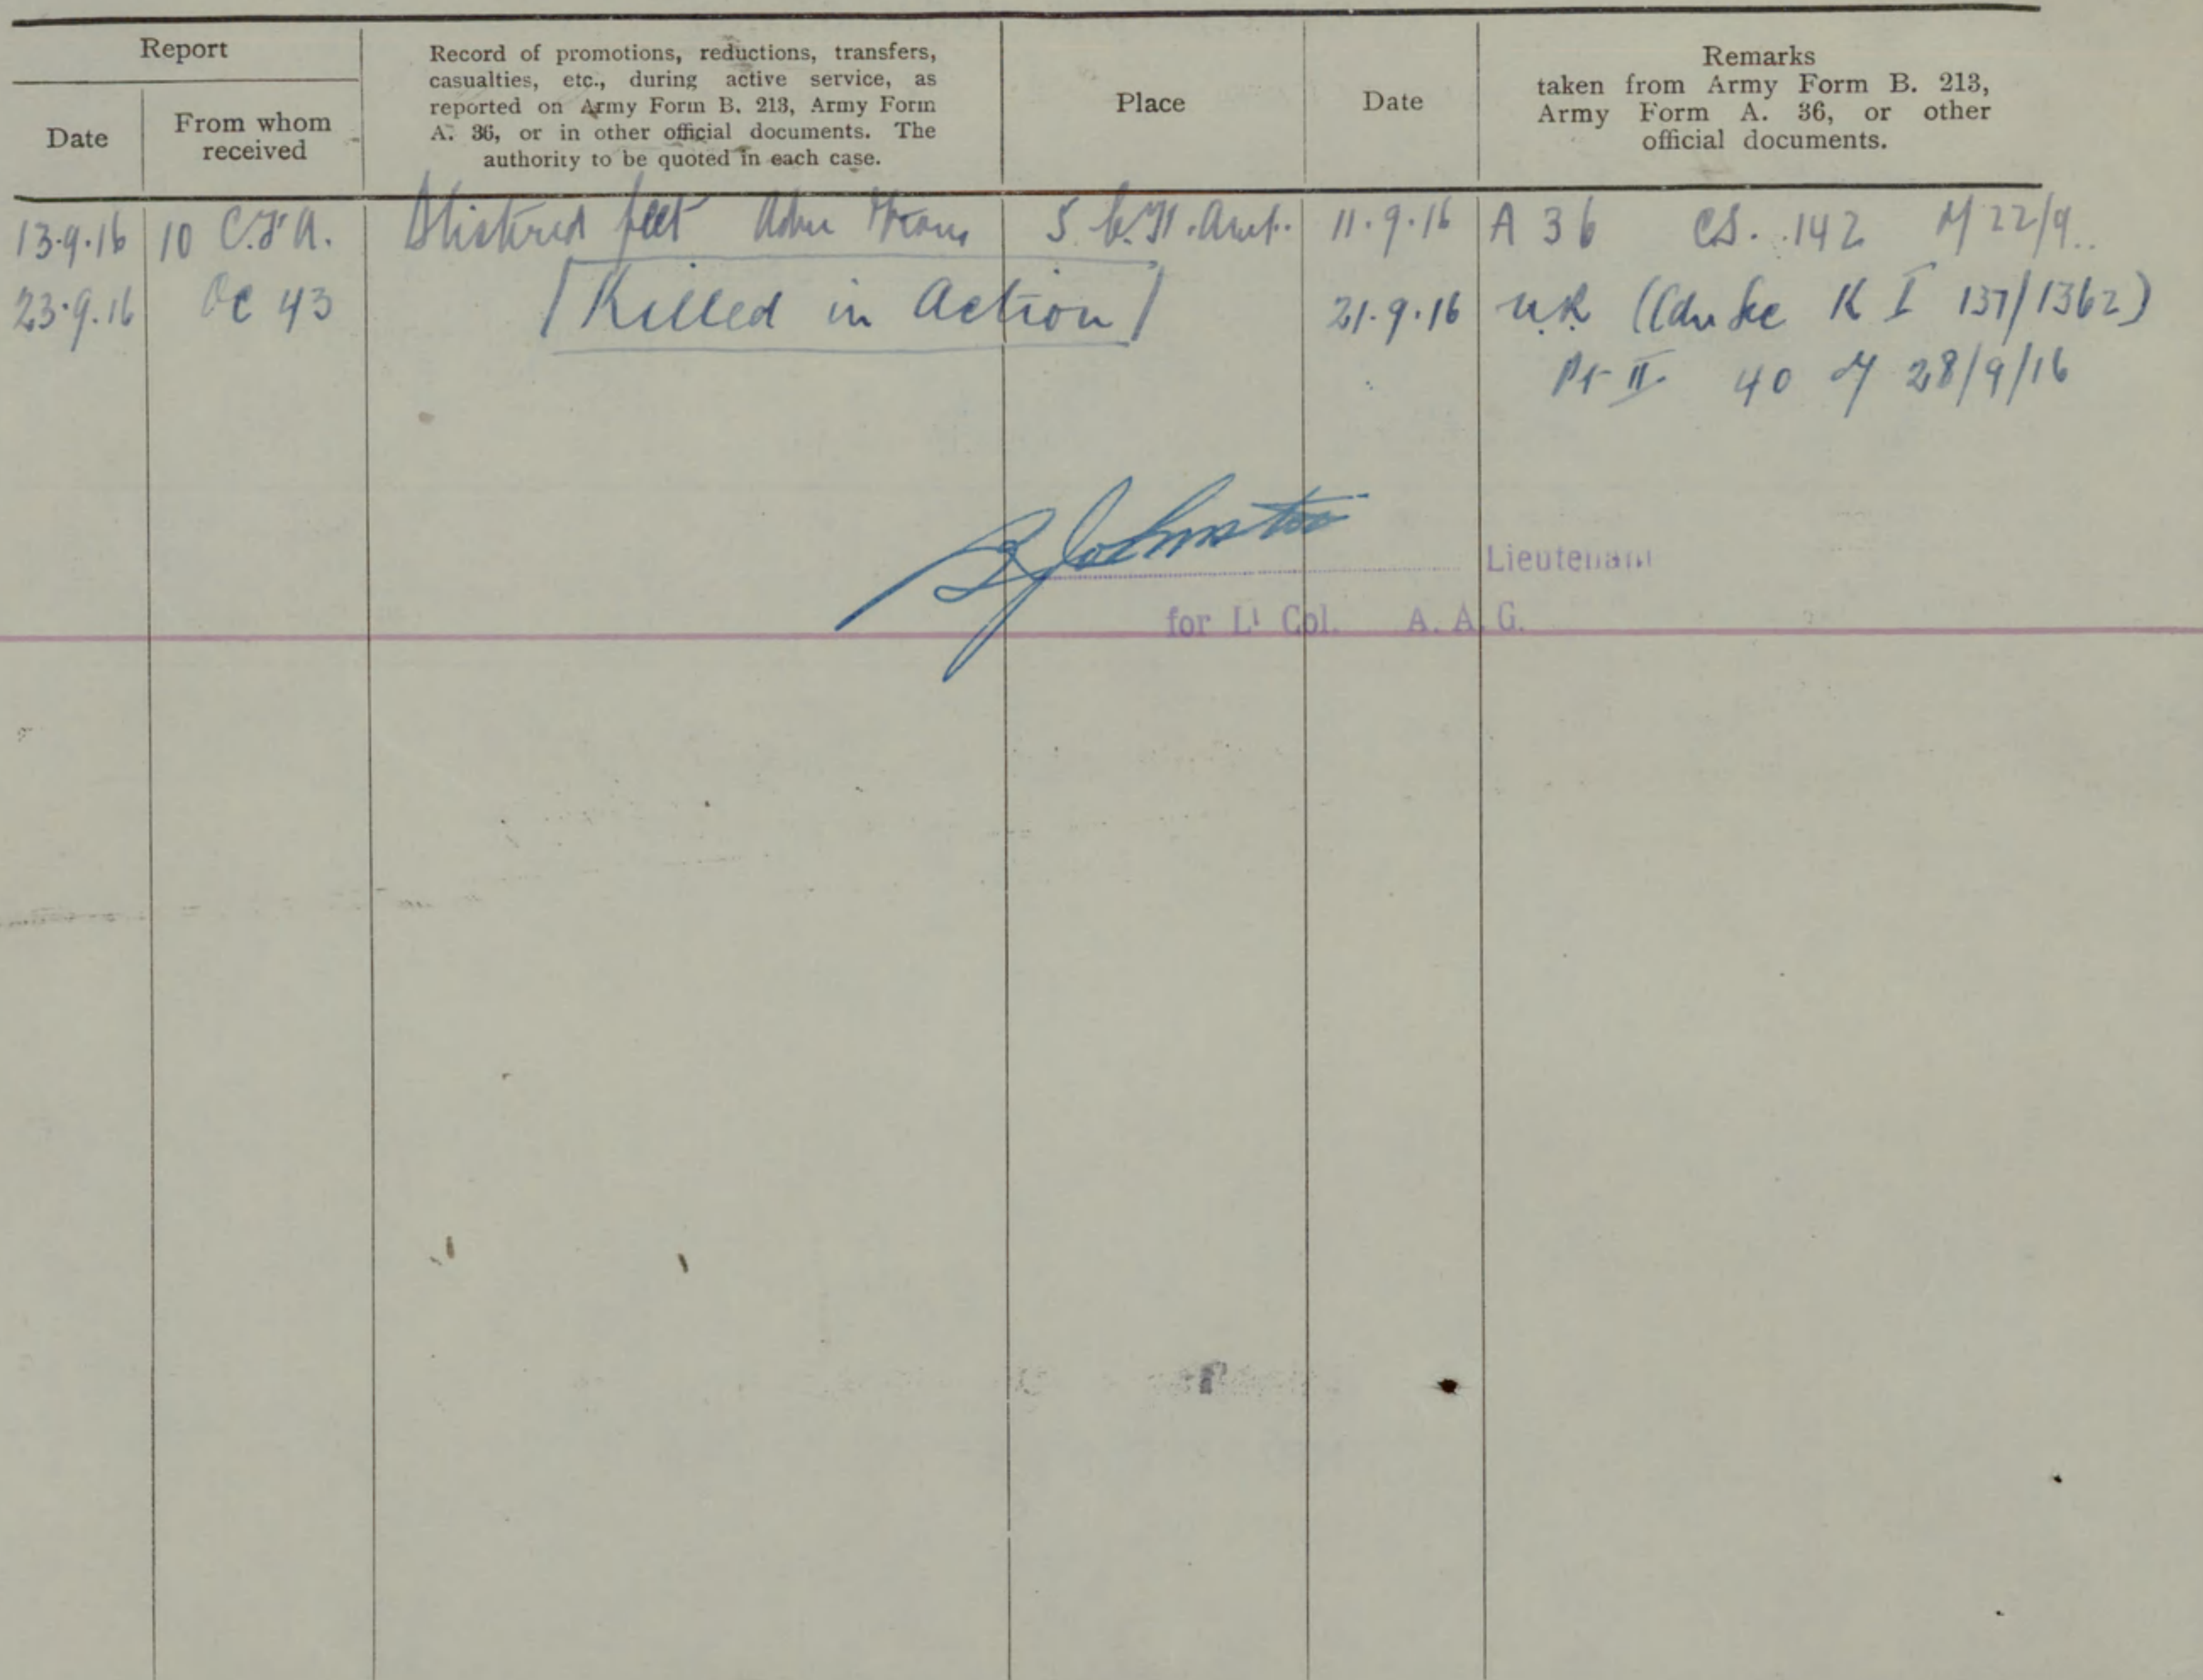 Report
Date
From whom received
Record of promotions, reductions, transfers,
casualties, etc., during active service, as
reported on Army Form B. 213, Army Form
A. 36, or in other official documents. The
authority to be quoted in each case.
Place
Date
Remarks
taken from Army Form B. 213,
Army Form A. 36, or other
official documents.
13.9.16 10 C.F.A. Blistered feet Adm Trans 5 11.9.16 A 36 CS. 142 22/9
23.9.16 OC 43 Killed in Action 21.9.16 137/1362)
Pt II 40 of 28/9/16
Johnston
Lieutenant
for Lt Col. A. A. G.